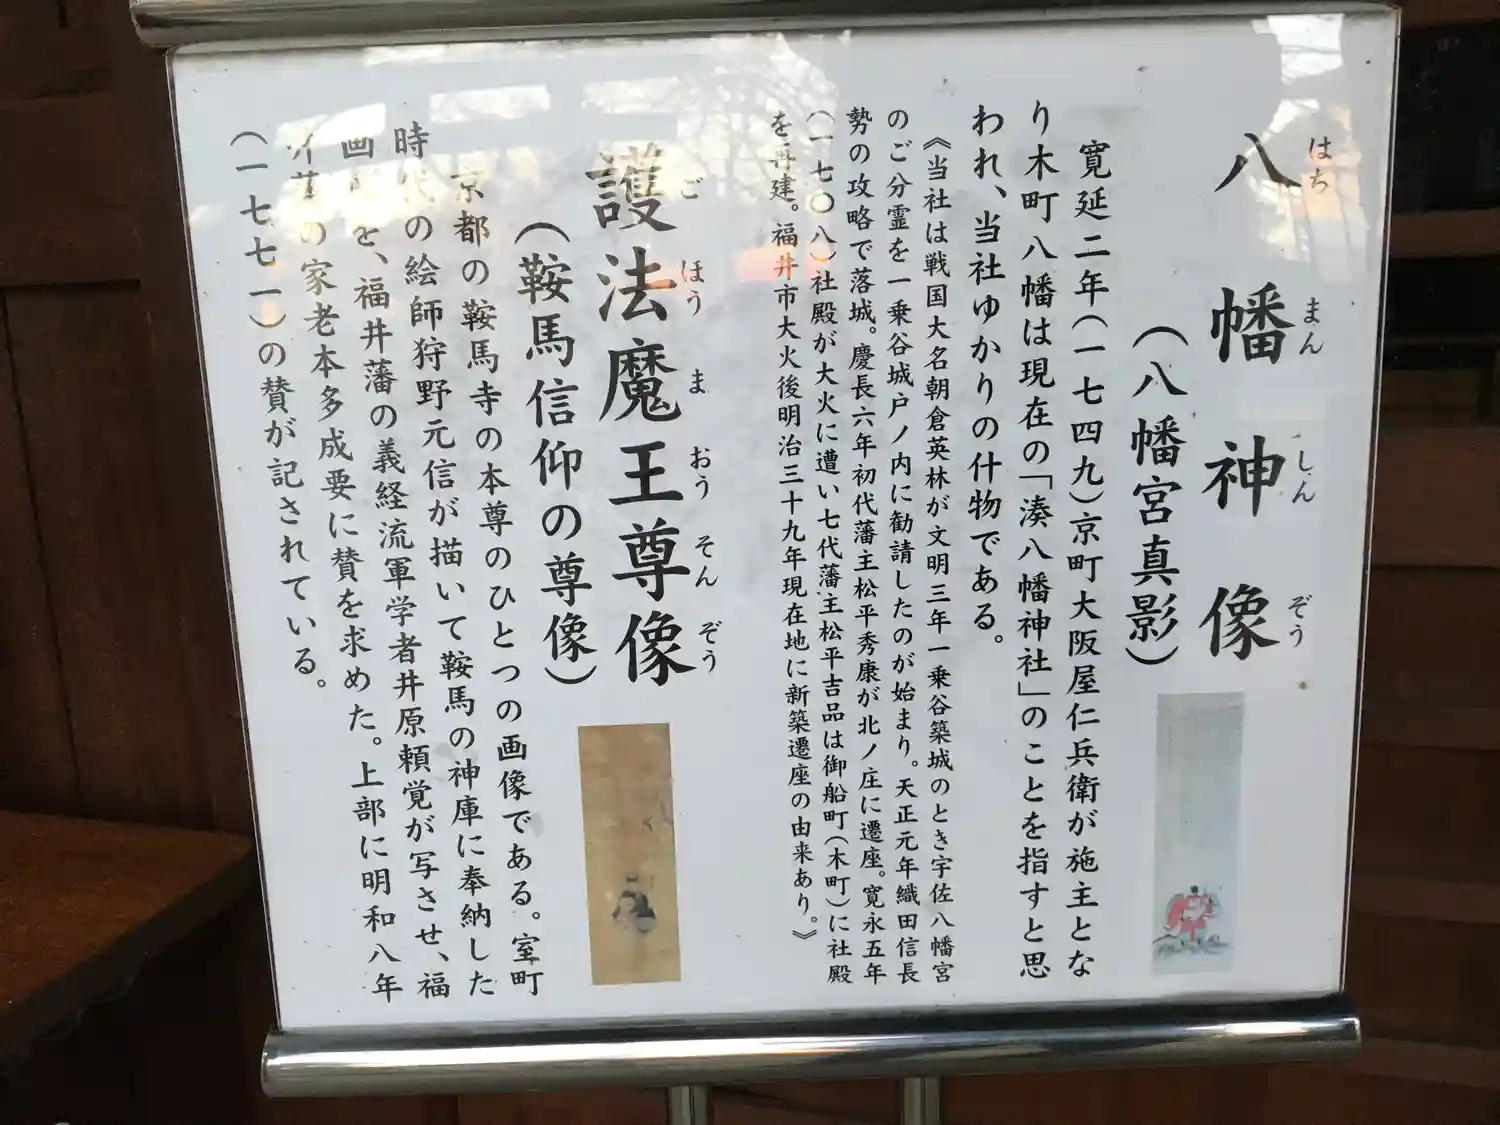 八幡神像
はちまんしんぞう
(八幡宮真影)
寛延二年(一七四九)京町大阪屋仁兵衛が施主とな
り木町八幡は現在の「湊八幡神社」のことを指すと思
われ、当社ゆかりの什物である。
《当社は戦国大名朝倉英林が文明三年一乗谷築城のとき宇佐八幡宮
のご分霊を一乗谷城戸ノ内に勧請したのが始まり。天正元年織田信長
勢の攻略で落城。慶長六年初代藩主松平秀康が北ノ庄に遷座。寛永五年
(一七〇八)社殿が大火に遭い七代藩主松平吉品は御船町(木町)に社殿
を再建。福井市大火後明治三十九年現在地に新築遷座の由来あり。》
護法魔王尊像
ごほうまおうそんぞう
(鞍馬信仰の尊像)
京都の鞍馬寺の本尊のひとつの画像である。室町
時代の絵師狩野元信が描いて鞍馬の神庫に奉納した
画を、福井藩の義経流軍学者井原頼覚が写させ、福
井藩の家老本多成要に賛を求めた。上部に明和八年
(一七七一)の賛が記されている。